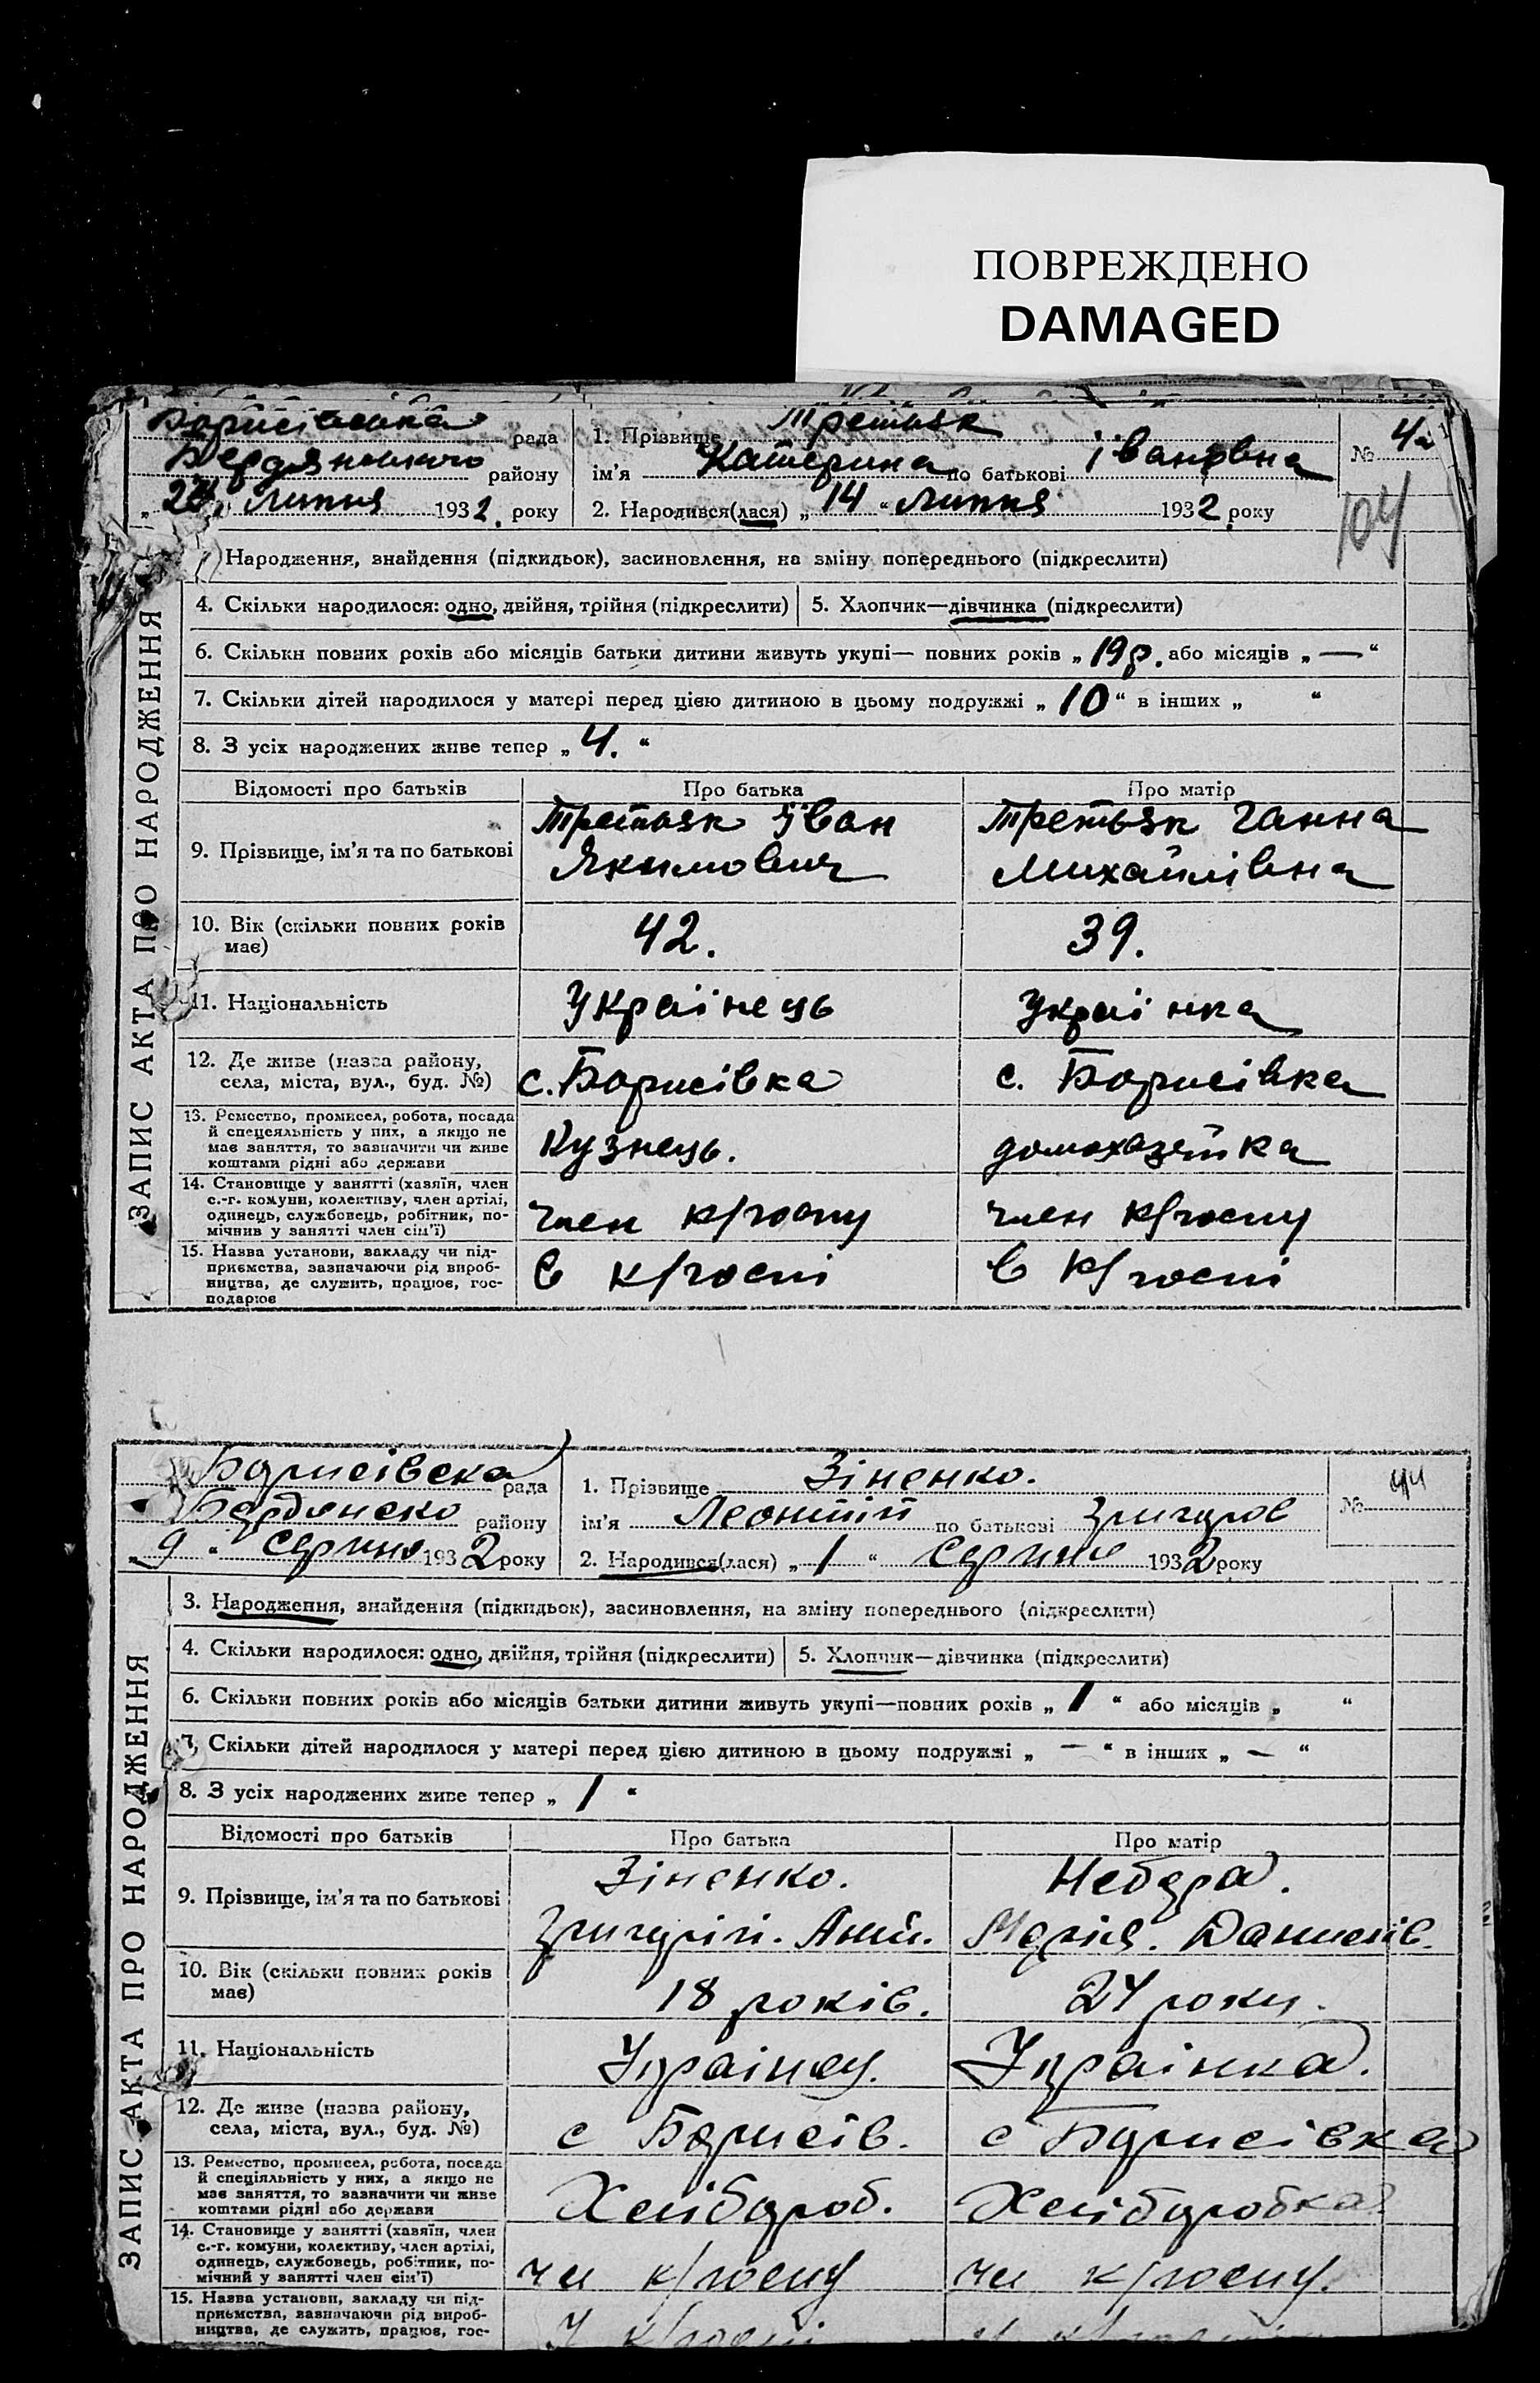 ПОВРЕЖДЕНО
DAMAGED
Борисівська рада
Бердянського району
„ 1932. року
1. Прізвище Третьяк
ім'я Катерина по батькові Івановна
2. Народився(лася) „ 14 “ Липня 1932 року
№
104
Народження, знайдення (підкидьок), засиновлення, на зміну попереднього (підкреслити)
4. Скільки народилося: одно, двійня, трійня (підкреслити)
5. Хлопчик—дівчинка (підкреслити)
6. Скільки повних років або місяців батьки дитини живуть укупі— повних років „ 19 р. або місяців „ — “
7. Скільки дітей народилося у матері перед цією дитиною в цьому подружжі „ 10 “ в інших „ “
8. З усіх народжених живе тепер „ 4. “
Відомості про батьків
Про батька
Про матір
9. Прізвище, ім'я та по батькові
Третьяк Іван
Якимович
Третьяк Ганна
Михайлівна
10. Вік (скільки повних років
має)
42.
39.
11. Національність
Українець
Українка
12. Де живе (назва району,
села, міста, вул., буд. №)
с. Борисівка
с. Борисівка
13. Ремество, промисел, робота, посада
й спецеяльність у них, а якщо не
має заняття, то зазначити чи живе
коштами рідні або держави
Кузнець.
домохазяйка
14. Становище у занятті (хазяїн, член
с.-г. комуни, колективу, член артілі,
одинець, службовець, робітник, по-
мічнив у занятті член сім'ї)
член к/госпу
член к/госпу
15. Назва установи, закладу чи під-
приємства, зазначаючи рід вироб-
ництва, де служить, працює, гос-
подарює
в к/госпі
в к/госпі
ЗАПИС АКТА ПРО НАРОДЖЕННЯ
Борисівска рада
Бердянско району
„ 9 “ Серпня 1932 року
1. Прізвище Зіненко.
ім'я Леонтій по батькові Григоров
2. Народився(лася) „ 1 “ Серпня 1932 року
№ 44
3. Народження, знайдення (підкидьок), засиновлення, на зміну попереднього (підкреслити)
4. Скільки народилося: одно, двійня, трійня (підкреслити)
5. Хлопчик—дівчинка (підкреслити)
6. Скільки повних років або місяців батьки дитини живуть укупі—повних років „ 1 “ або місяців „ “
7. Скільки дітей народилося у матері перед цією дитиною в цьому подружжі „ — “ в інших „ — “
8. З усіх народжених живе тепер „ 1 “
Відомості про батьків
Про батька
Про матір
9. Прізвище, ім'я та по батькові
Зіненко.
Григорій.
Марія. Данилів.
10. Вік (скільки повних років
має)
18 років.
24 роки.
11. Національність
Українец.
Українка.
12. Де живе (назва району,
села, міста, вул., буд. №)
с Борисів.
с Борисівка
13. Ремество, промисел, робота, посада
й спеціяльність у них, а якщо не
має заняття, то зазначити чи живе
коштами рідні або держави
Хлібороб.
Хліборобка
14. Становище у занятті (хазяїн, член
с.-г. комуни, колективу, член артілі,
одинець, службовець, робітник, по-
мічний у занятті член сім'ї)
чл к/госпу
чл к/госпу.
15. Назва установи, закладу чи під-
приємства, зазначаючи рід вироб-
ництва, де служить, працює, гос-
У к/госпі
ЗАПИС АКТА ПРО НАРОДЖЕННЯ